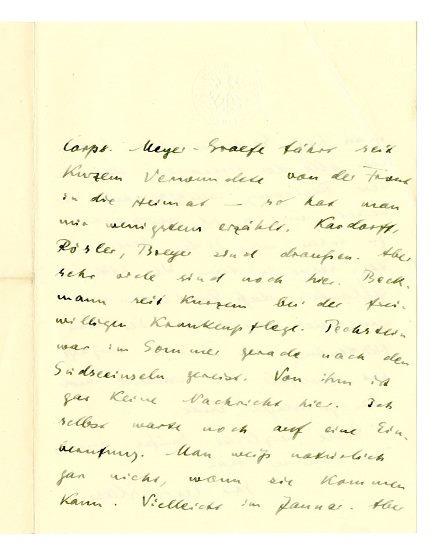 Corps. Meyer-Graefe fährt seit
Kurzem Verwundete von der Front
in die Heimat – so hat man
mir wenigstens erzählt. Kardorff,
Rösler, Breyer sind draußen. Aber
sehr viele sind noch hier. Beck-
mann seit Kurzem bei der frei-
willigen Krankenpflege. Pechstein
war im Sommer gerade nach den
Südseeinseln gereist. Von ihm ist
gar keine Nachricht hier. Ich
selbst warte noch auf eine Ein-
berufung. Man weiß natürlich
gar nicht, wann sie kommen
kann. Vielleicht im Januar. Aber